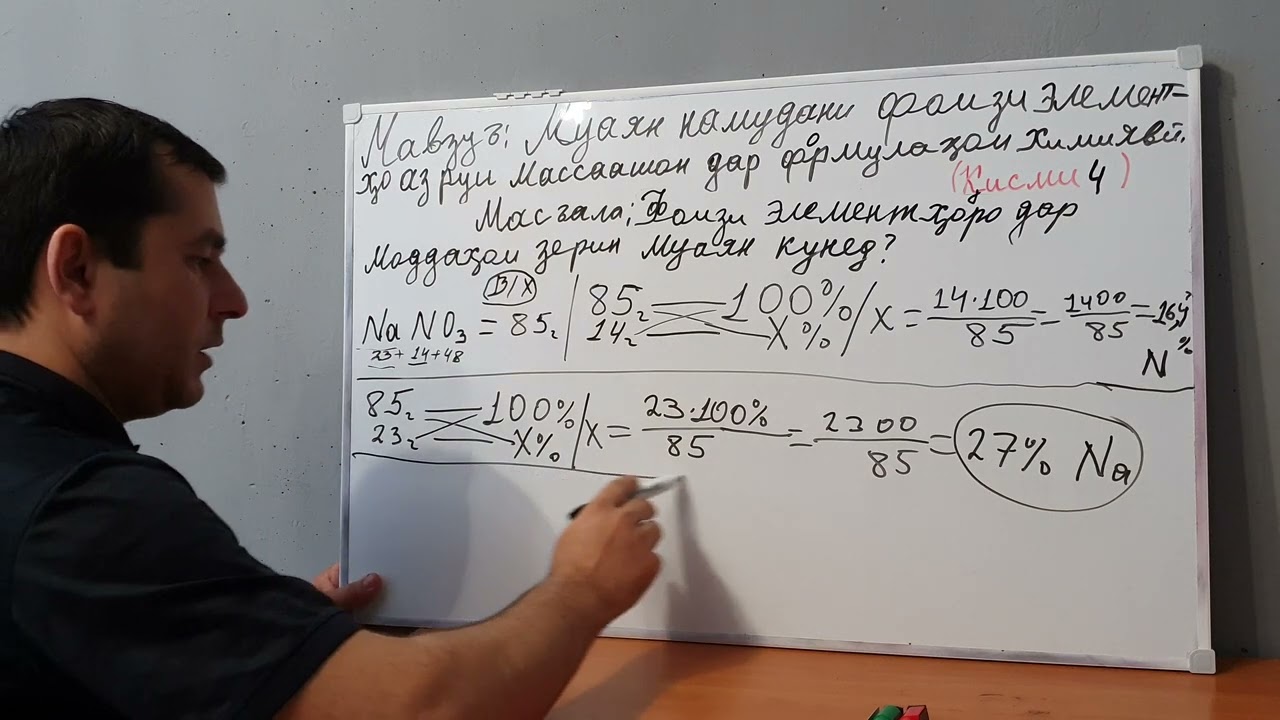 Мавзуъ: Муаян намудани фоизи элемент-
ҳо аз руи массаашон дар формулаҳои химиявӣ.
(Қисми 4)
Масъала: Фоизи элементҳоро дар
моддаҳои зерин муаян кунед?
NaNO₃ = 85г
23+14+48
85г 100% / X = 14·100/85 = 1400/85 = 16,4%
14г X%
N
85г 100% / X = 23·100%/85 = 2300/85 = 27% Na
23г X%